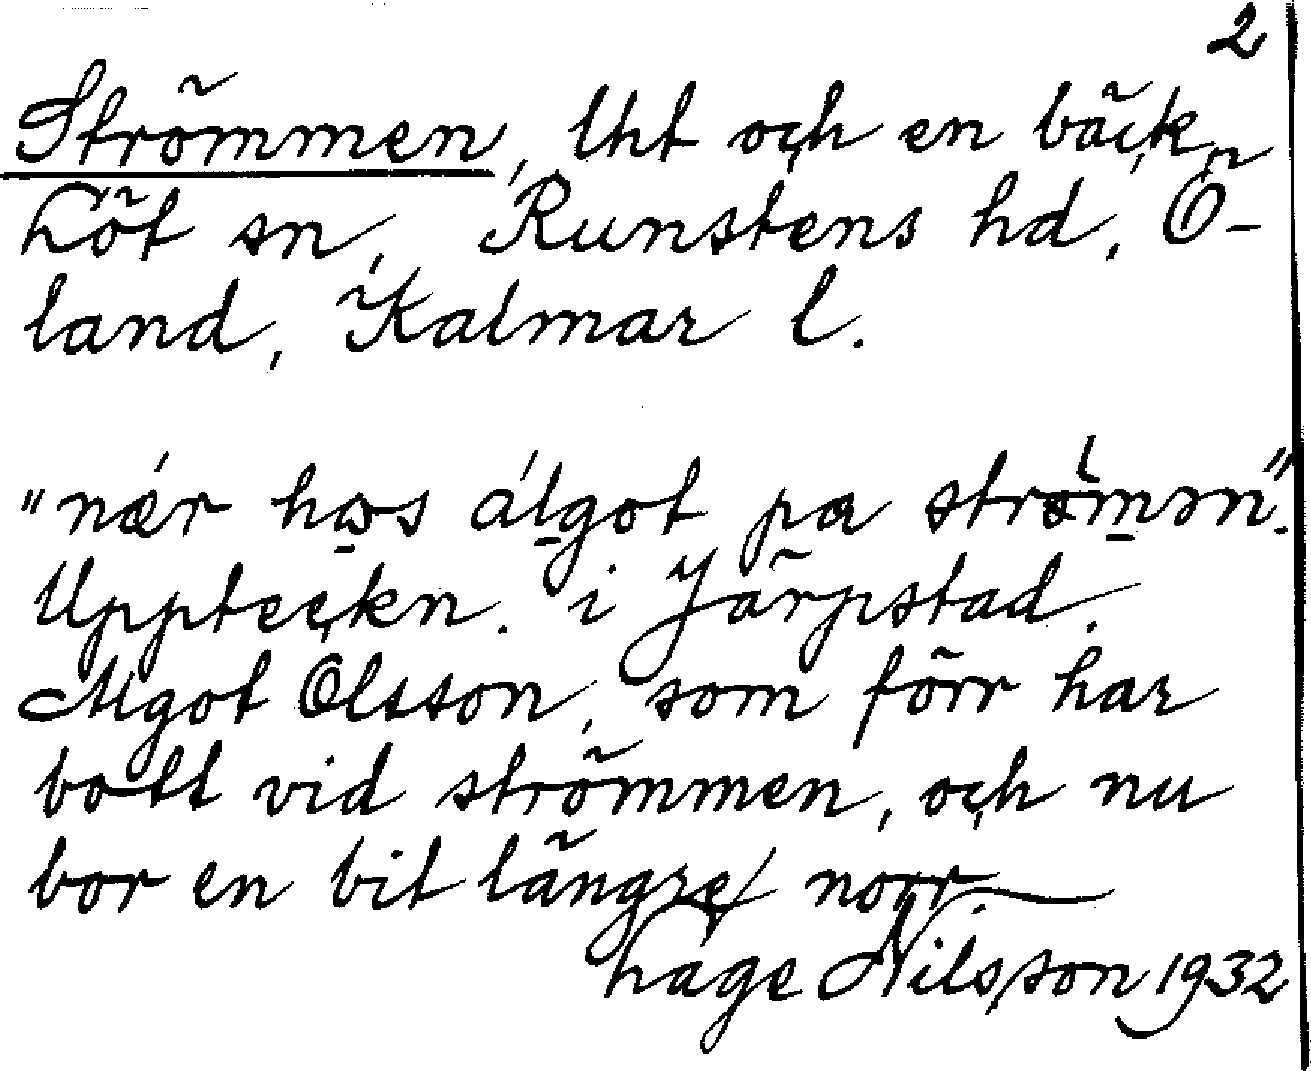 2
Strömmen, lht och en bäck,
Löt sn, Runstens hd, Ö-
land, Kalmar l.
"nǽr hos álgot pa strömən".
Uppteckn. i Järpstad.
Algot Olsson, som förr har
bott vid strömmen, och nu
bor en bit längre norr.
Lage Nilsson 1932